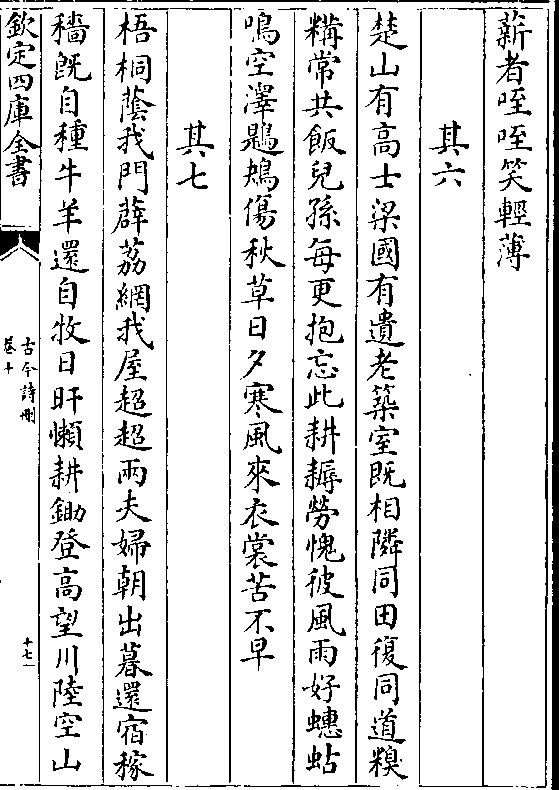 薪者咥咥笑輕薄
其六
楚山有高士梁國有遺老築室既相隣同田復同道糗
糒常共飯兒孫每更抱忘此耕耨勞愧彼風雨好蟪蛄
鳴空澤鶗鴂傷秋草日夕寒風來衣裳苦不早
其七
梧桐蔭我門薜荔網我屋超超兩夫婦朝出暮還宿稼
穡既自種牛羊還自牧日旰懶耕鋤登高望川陸空山
欽定四庫全書
古今詩刪
卷十
十七